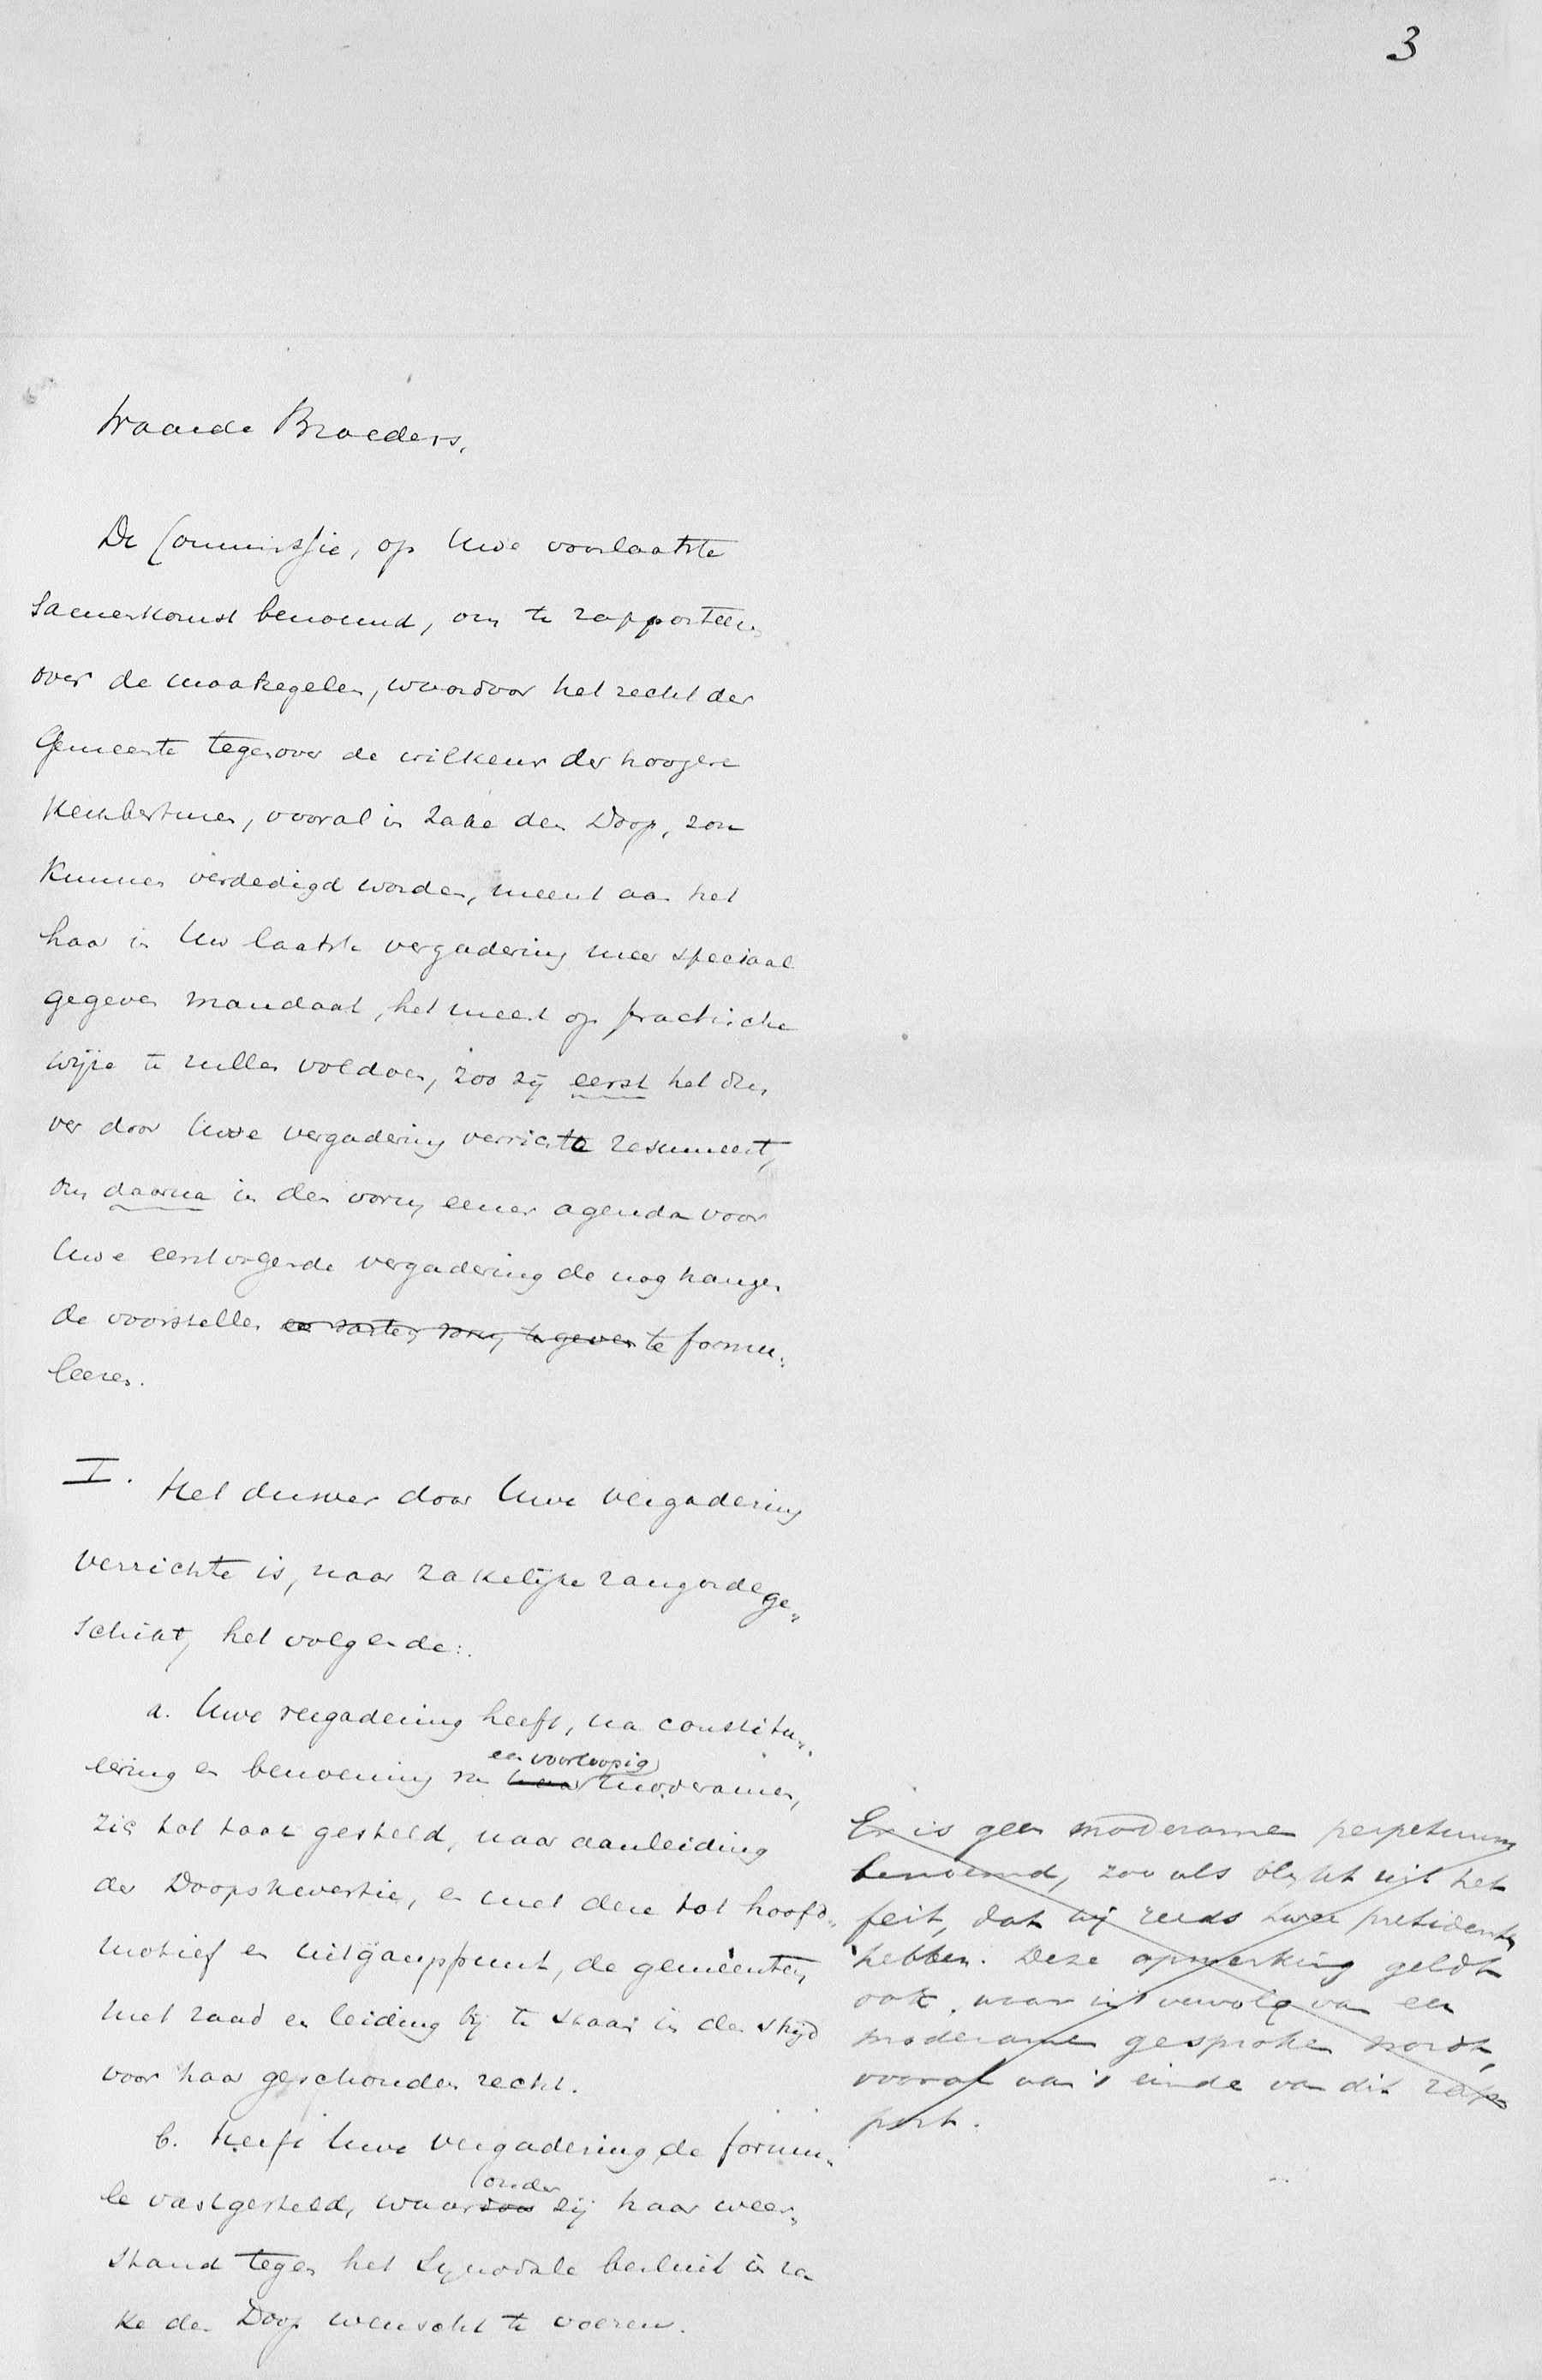 3
Waarde Broeders,
De Commissie, op Uwe voorlaatste
samenkomst benoemd, om te rapporteeren
over de maatregelen, waardoor het recht der
Gemeente tegenover de willkeur der hoogere
Kerkbesturen, vooral in zake den Doop, zou
Kunnen verdedigd worden, meent aan het
haar in Uw laatste vergadering meer speciaal
gegeven mandaat, het meest op practische
wijze te zullen voldoen, zoo zij eerst het dus
ver door Uwe vergadering verrichte resumeert,
om daarna in den vorm eener agenda voor
Uwe eerstvolgende vergadering de nog hangen
de voorstellen te formu„
leeren.
I. Het dusver door Uwe vergadering
verrichte is, naar zakelijke rangorde ge„
schikt, het volgende:
a. Uwe vergadering heeft, na constitu„
eering en benoeming van een voorloopig moderamen,
zich tot taak gesteld, naar aanleiding
der Doopskwestie, en met deze tot hoofd„
motief en uitgangspunt, de gemeenten
met raad en leiding bij te staan in den strijd
voor haar geschonden recht.
b. Heeft Uwe vergadering de formu„
le vastgesteld, waaronder zij haar weer„
stand tegen het Synodale besluit in za
ke den Doop wenscht te voeren.
Er is geen moderamen perpetuum
benoemd, zooals blijkt uit het
feit, dat wij reeds twee presidenten
hebben. Deze opmerking geldt
ook, waar in 't vervolg van een
moderamen gesproken wordt,
vooral aan 't einde van dit rap
port.